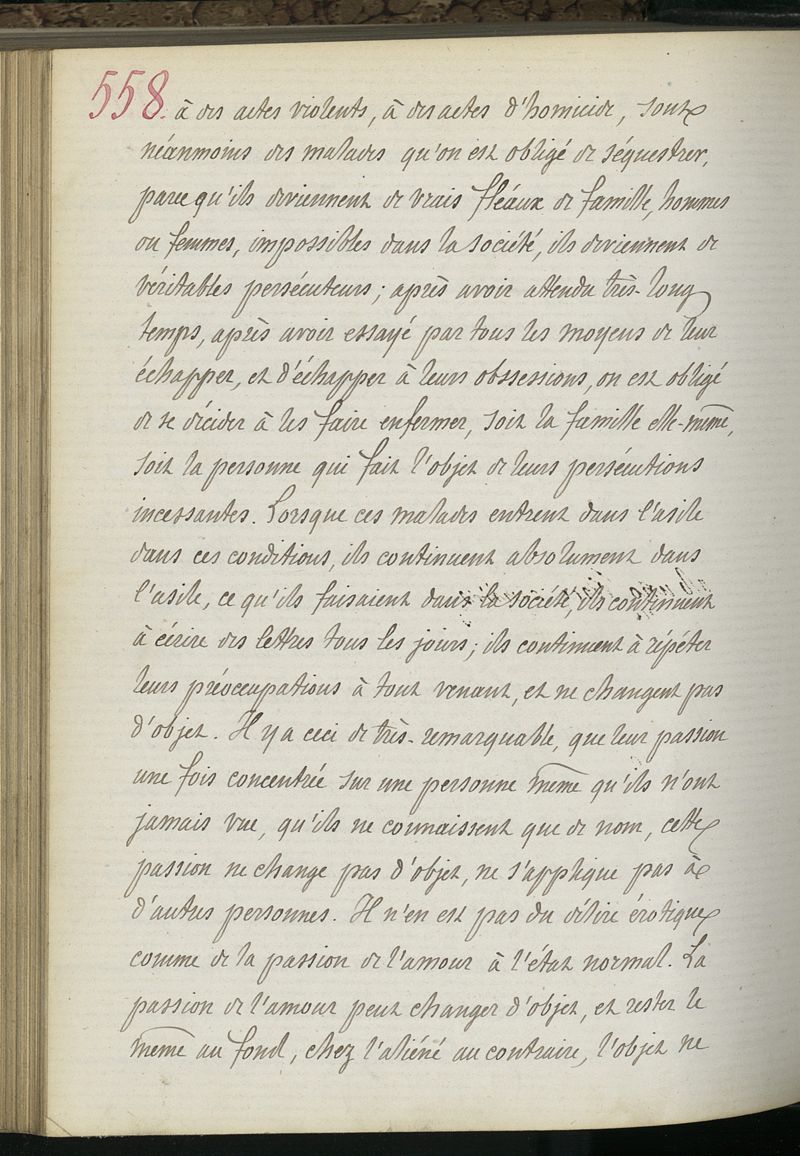 558. à des actes violents, à des actes d'homicide, sont
néanmoins des malades qu'on est obligé de séquestrer,
parce qu'ils deviennent de vrais fléaux de famille, hommes
ou femmes, impossibles dans la société, ils deviennent de
véritables persécuteurs ; après avoir attendu très-long
temps, après avoir essayé par tous les moyens de leur
échapper, et d'échapper à leurs obssessions, on est obligé
de se décider à les faire enfermer, soit la famille elle-même,
soit la personne qui fait l'objet de leurs persécutions
incessantes. Lorsque ces malades entrent dans l'asile
dans ces conditions, ils continuent absolument dans
l'asile, ce qu'ils faisaient dans la société, ils continuent
à écrire des lettres tous les jours ; ils continuent à répéter
leurs préoccupations à tout venant, et ne changent pas
d'objet. Il y a ceci de très-remarquable, que leur passion
une fois concentrée sur une personne même qu'ils n'ont
jamais vue, qu'ils ne connaissent que de nom, cette
passion ne change pas d'objet, ne s'applique pas à
d'autres personnes. Il n'en est pas du délire érotique
comme de la passion de l'amour à l'état normal. La
passion de l'amour peut changer d'objet, et rester le
même au fond, chez l'aliéné au contraire, l'objet ne